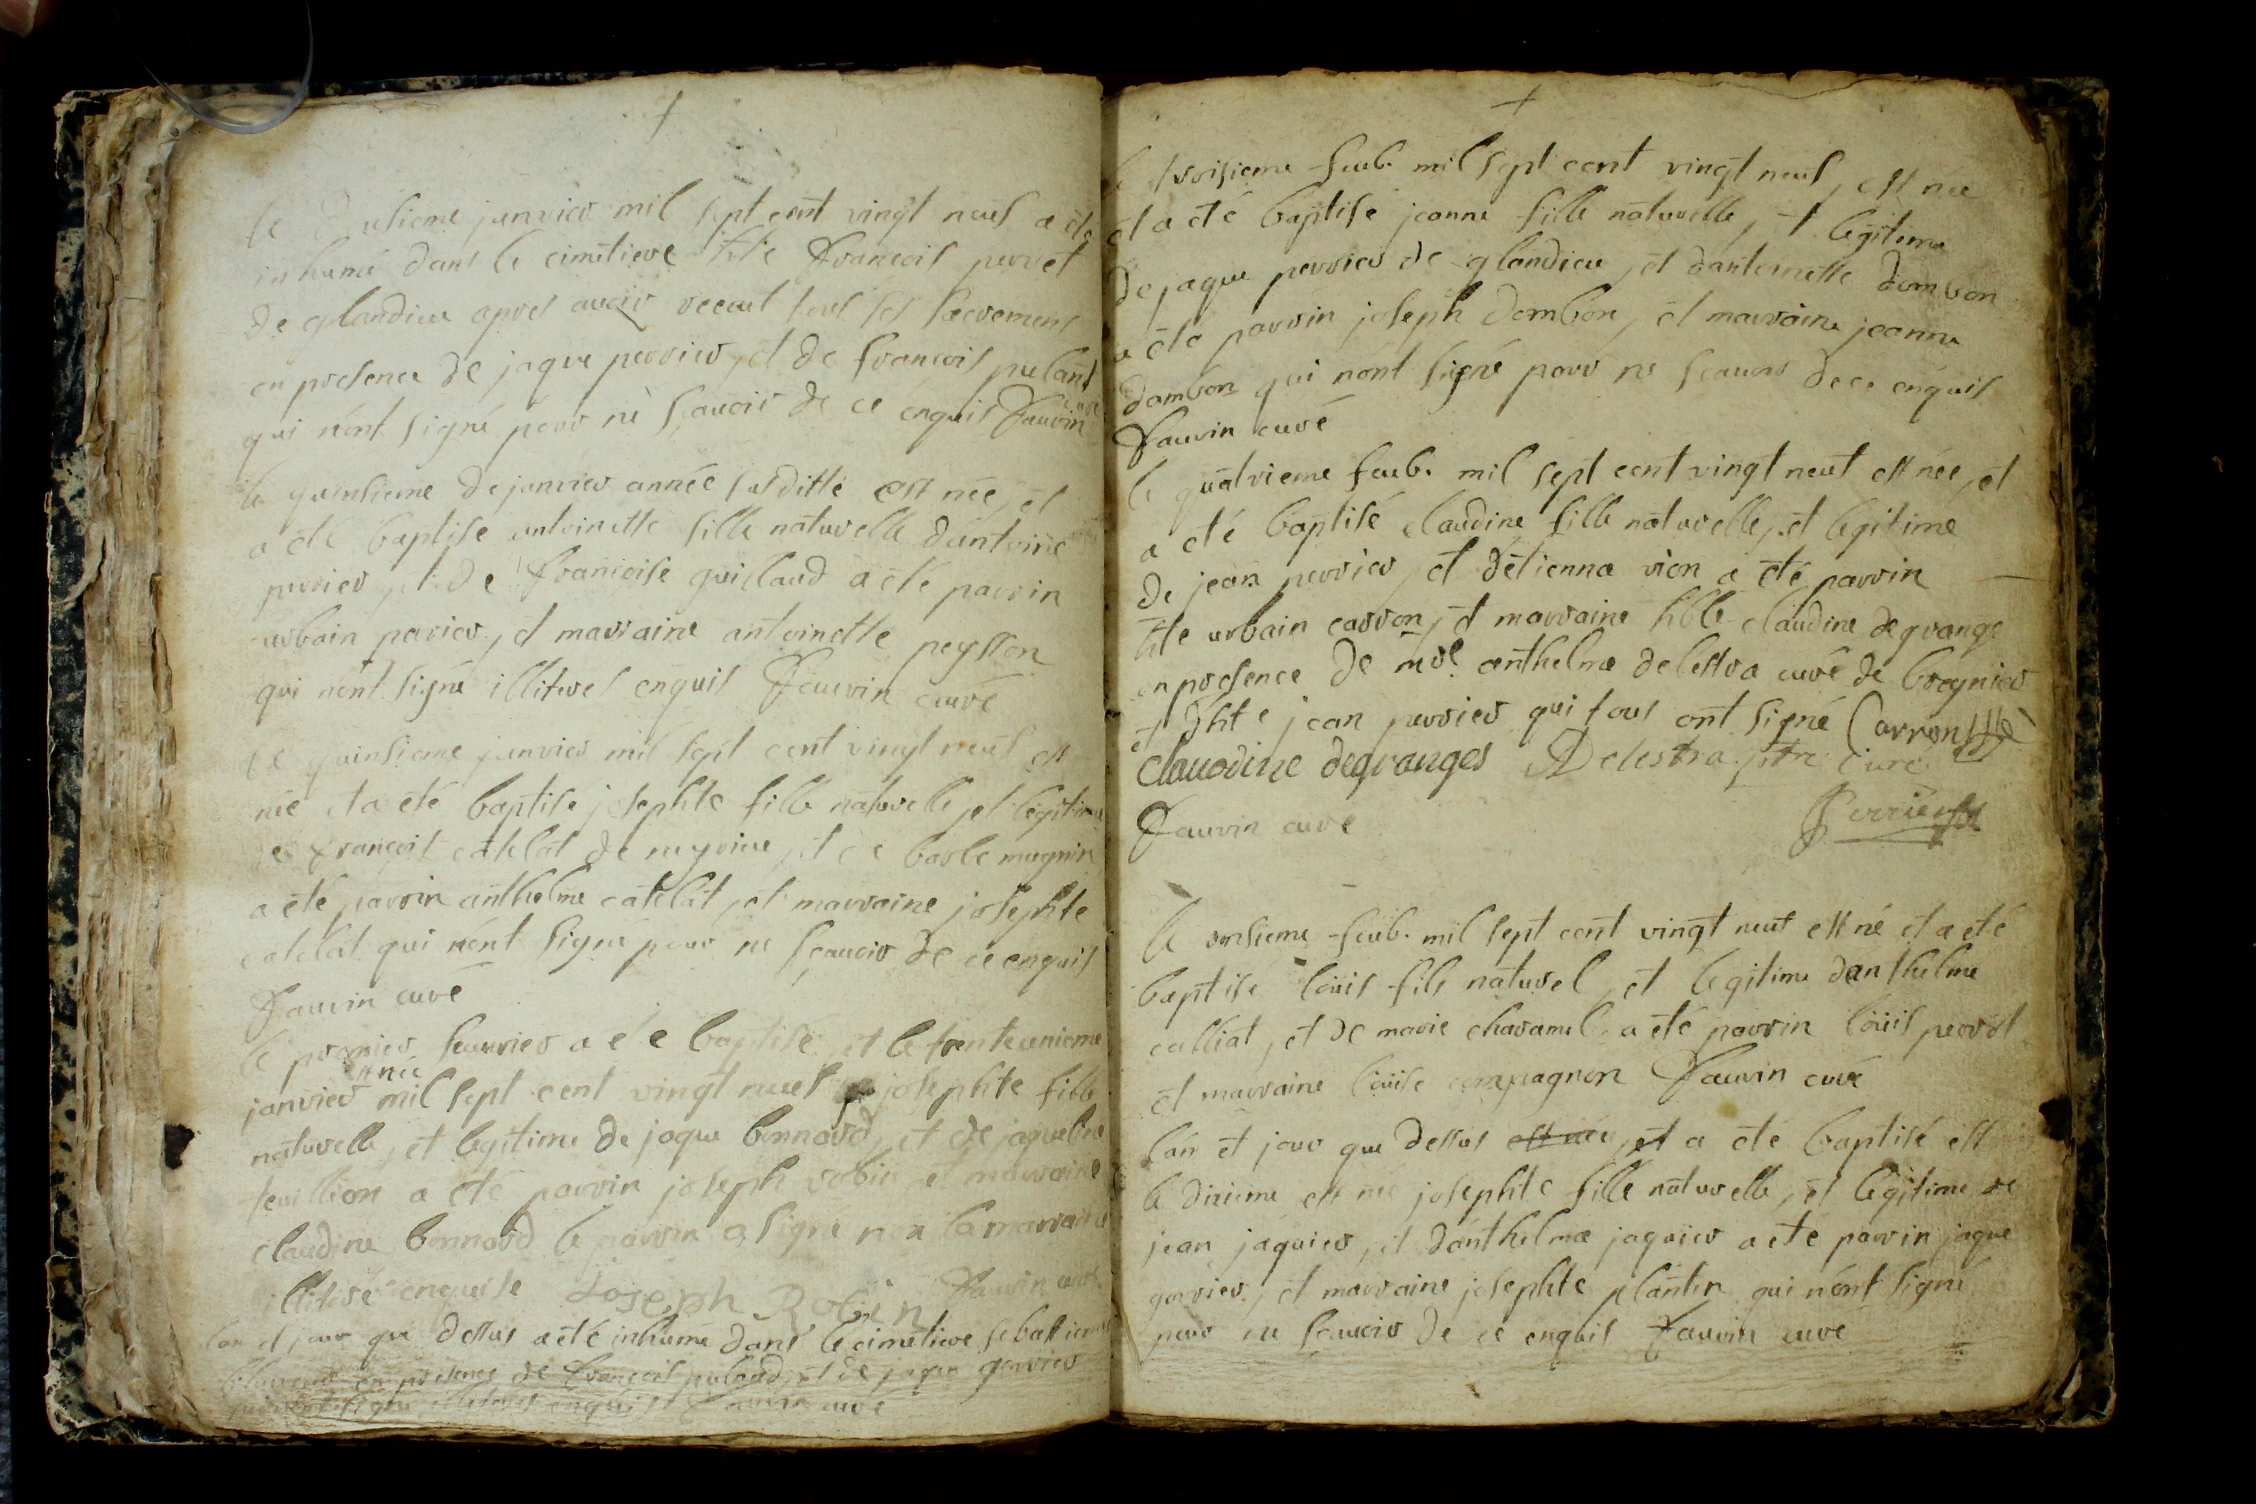 le dusieme janvier mil sept cent vingt neuf a eté
inhumé dans le cimetiere hte francois perret
de glandieu apres avoir receut tous ses sacremens
en presence de jaque perrier, et de francois puland
qui n'ont signé pour ne scavoir de ce enquis fauvin curé
le quinsieme de janvier année susditte est née, et
a eté baptisé antoinette fille naturelle d'antoine
perrier, et de francoise guillaud a eté parrin
urbain perrier, et marraine antoinette peysson
qui n'ont signé illiteres enquis fauvin curé
le quinsieme janvier mil sept cent vingt neuf est
née et a eté baptisé josephte fille naturelle, et legitime
de francois catelat de meyrieu, et de barbe mugnin
a eté parrin anthelme catelat, et marraine josephte
catelat qui n'ont signé pour ne scavoir de ce enquis
fauvin curé
le premier feuvrier a eté baptisé et le trente unieme
janvier est née mil sept cent vingt neuf josephte fille
naturelle, et legitime de jaque bonnard, et de jaqueline
teuillion a eté parrin joseph robin et marraine
claudine bonnard le parrin a signé non la marraine
illiteré enquise Joseph Robin fauvin curé
l'an et jour que dessus a eté inhumé dans le cimetiere sebastienne
en presence de francois puland, et de jaque gorrier
qui n'ont signé illiteres enquis fauvin curé
le troisieme feub. mil sept cent vingt neuf, est née
et a eté baptisé jeanne fille naturelle, et legitime
de jaque perrier de glandieu, et d'antoinette dombon
a eté parrin joseph dombon, et marraine jeanne
dombon qui n'ont signé pour ne scavoir de ce enquis
fauvin curé
le quatrieme feub. mil sept cent vingt neuf est née, et
a eté baptisé claudine fille naturelle, et legitime
de jean perrier, et d'etienna vion a eté parrin
hte urbain carron, et marraine hble claudine degrange
en presence de mre anthelme delestra curé de bregnier
et d'hte jean perrier qui tous ont signé Carron
Clauodine degranges ADelestra ptre curé
fauvin curé Perrier
le onsieme feub. mil sept cent vingt neuf est né et a eté
baptisé loüis fils naturel, et legitime d'anthelme
calliat, et de marie charamel a eté parrin loüis perrot
et marraine loüise compagnon fauvin curé
l'an et jour que dessus est née, et a eté baptisé est
le dixieme est née josephte fille naturelle, et legitime de
jean jaquier, et d'anthelma jaquier a eté parrin jaque
gorrier, et marraine josephte plantin qui n'ont signé
pour ne scavoir de ce enquis fauvin curé